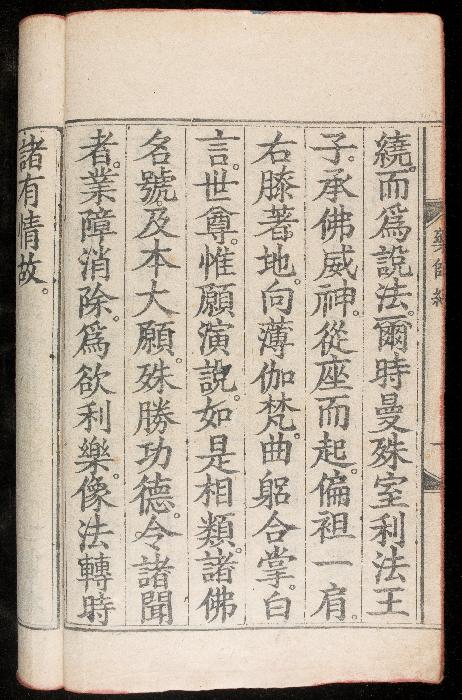 藥師經
繞。而爲說法。爾時曼殊室利法王
子。承佛威神。從座而起。偏袒一肩。
右膝著地。向薄伽梵。曲躬合掌。白
言。世尊。惟願演說。如是相類。諸佛
名號。及本大願。殊勝功德。令諸聞
者。業障消除。爲欲利樂。像法轉時
諸有情故。